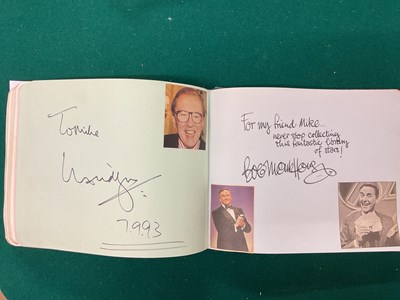 To Mike
7.9.93
For my friend Mike...
never stop collecting
this fantastic library
of stars!
Bob Monkhouse